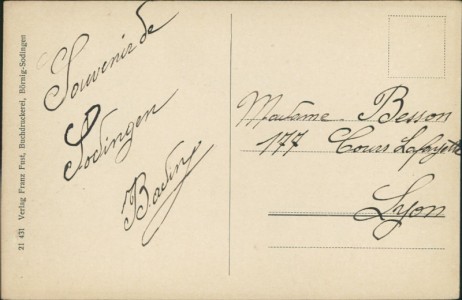 Souvenir de
Sodingen
Madame Besson
177 Cours Lafayette
Lyon
21 431 Verlag Franz Fust, Buchdruckerei, Börnig-Sodingen